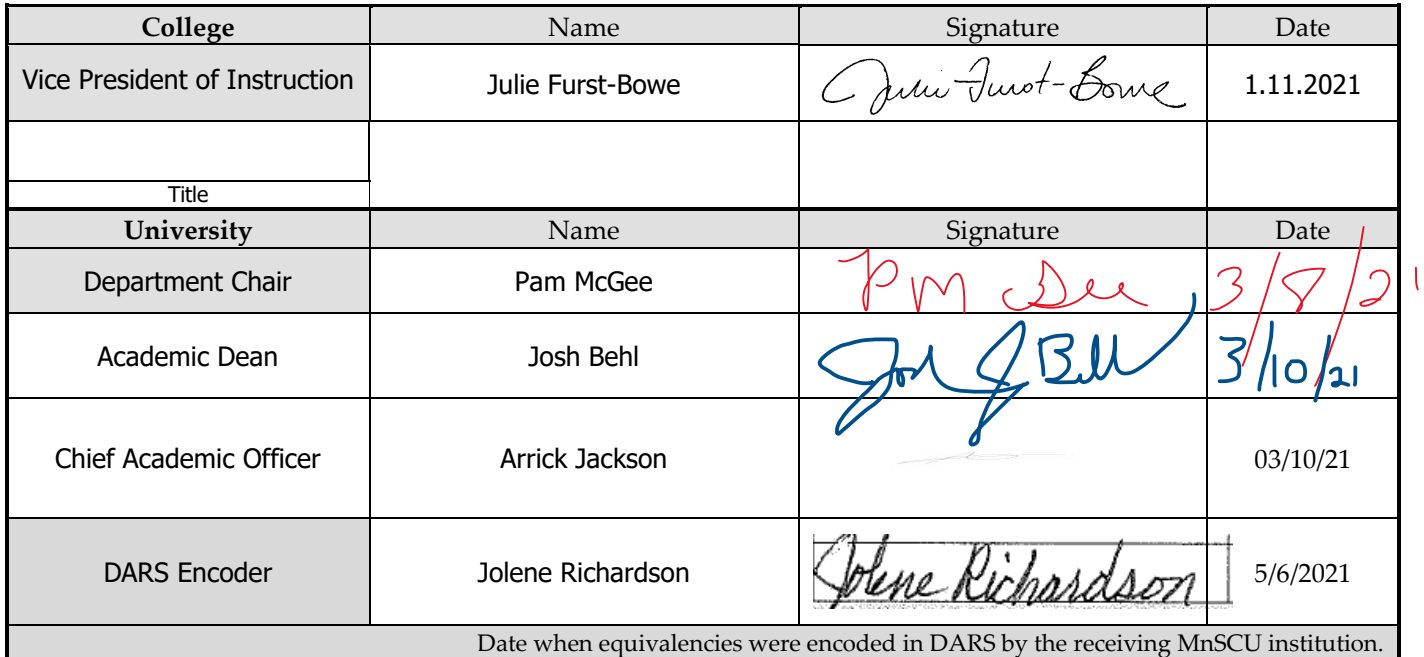 College Name Signature Date
Vice President of Instruction Julie Furst-Bowe Julie Furst-Bowe 1.11.2021
Title
University Name Signature Date
Department Chair Pam McGee PM Gee 3/8/21
Academic Dean Josh Behl Josh J Behl 3/10/21
Chief Academic Officer Arrick Jackson 03/10/21
DARS Encoder Jolene Richardson Jolene Richardson 5/6/2021
Date when equivalencies were encoded in DARS by the receiving MnSCU institution.